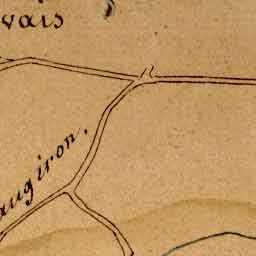 vais
augiron.